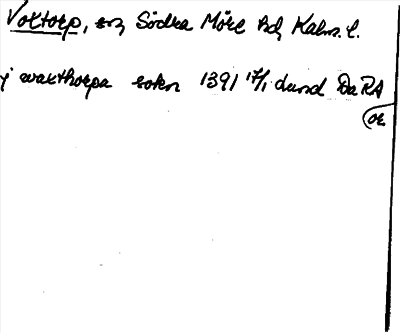 Voxtorp, sn, Södra Möre hd, Kalm. l.
j waxthorpa sokn 1391 17/1 Lund Da RA
or.